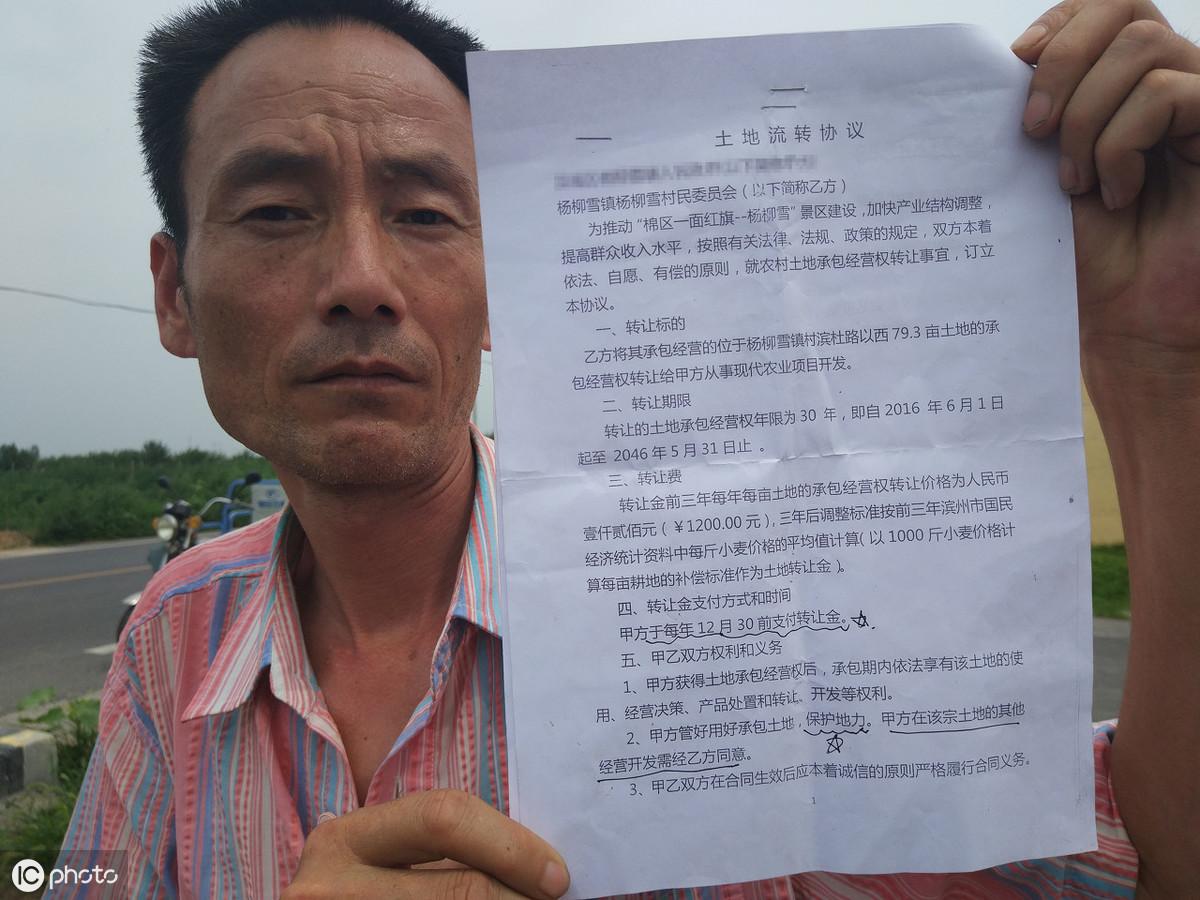 土地流转协议
杨柳雪镇杨柳雪村民委员会（以下简称乙方）
为推动“棉区一面红旗--杨柳雪”景区建设，加快产业结构调整，
提高群众收入水平，按照有关法律、法规、政策的规定，双方本着
依法、自愿、有偿的原则，就农村土地承包经营权转让事宜，订立
本协议。
一、转让标的
乙方将其承包经营的位于杨柳雪镇村滨杜路以西 79.3 亩土地的承
包经营权转让给甲方从事现代农业项目开发。
二、转让期限
转让的土地承包经营权年限为 30 年，即自 2016 年 6 月 1 日
起至 2046 年 5 月 31 日止 。
三、转让费
转让金前三年每年每亩土地的承包经营权转让价格为人民币
壹仟贰佰元（￥1200.00 元），三年后调整标准按前三年滨州市国民
经济统计资料中每斤小麦价格的平均值计算（以 1000 斤小麦价格计
算每亩耕地的补偿标准作为土地转让金）。
四、转让金支付方式和时间
甲方于每年 12 月 30 前支付转让金。
五、甲乙双方权利和义务
1、甲方获得土地承包经营权后，承包期内依法享有该土地的使
用、经营决策、产品处置和转让、开发等权利。
2、甲方管好用好承包土地，保护地力。甲方在该宗土地的其他
经营开发需经乙方同意。
3、甲乙双方在合同生效后应本着诚信的原则严格履行合同义务。
1
IC photo